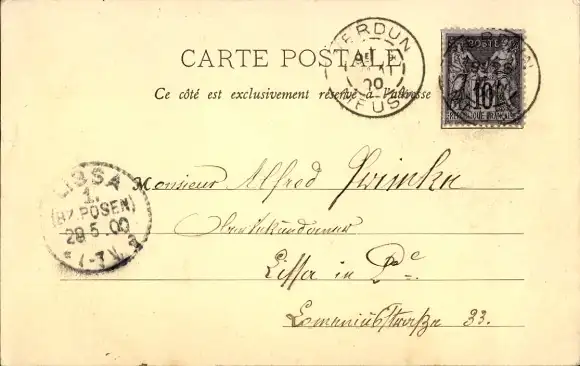 CARTE POSTALE
Ce côté est exclusivement réservé à l'adresse
VERDUN
00
MEUSE
POSTE
10
REPUBLIQUE FRANCAISE
LISSA
1.
(BZ. POSEN)
29.5.00
Monsieur Alfred
Lissa in P.
Comeniusstraße 33.